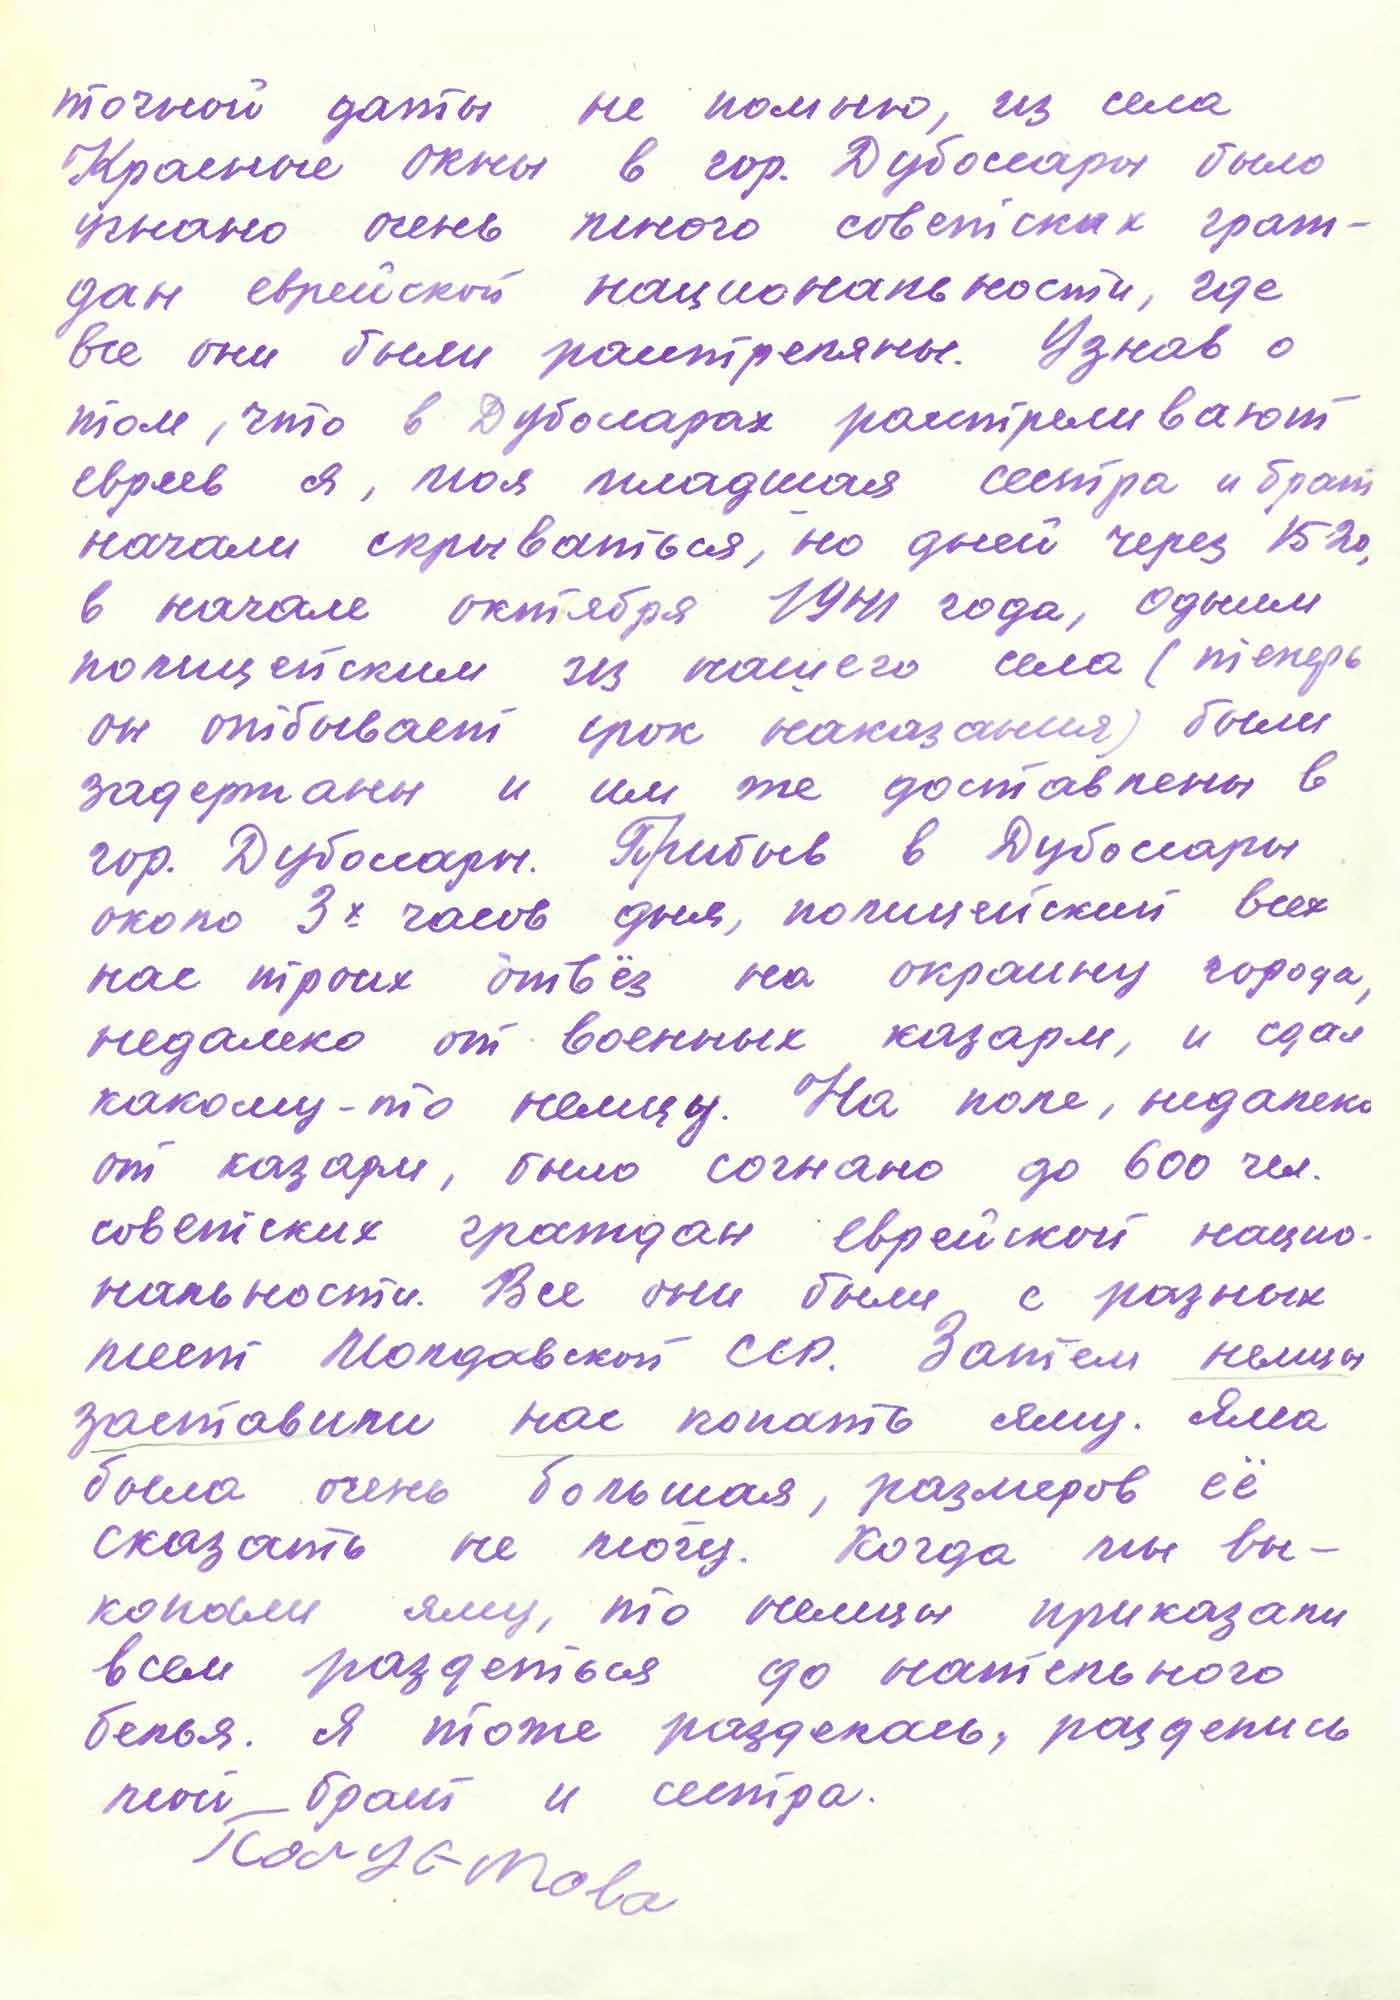 точной даты не помню, из села
Красные окны в гор. Дубоссары было
угнано очень много советских граж-
дан еврейской национальности, где
все они были расстреляны. Узнав о
том, что в Дубоссарах расстреливают
евреев я, моя младшая сестра и брат
начали скрываться, но дней через 15-20,
в начале октября 1941 года, одним
полицейским из нашего села (теперь
он отбывает срок наказания) были
задержаны и им же доставлены в
гор. Дубоссары. Прибыв в Дубоссары
около 3х часов дня, полицейский всех
нас троих отвёз на окраину города,
недалеко от военных казарм, и сдал
какому-то немцу. На поле, недалеко
от казарм, было согнано до 600 чел.
советских граждан еврейской нацио-
нальности. Все они были с разных
мест Молдавской ССР. Затем немцы
заставили нас копать яму. Яма
была очень большая, размеров её
сказать не могу. Когда мы вы-
копали яму, то немцы приказали
всем раздеться до нательного
белья. Я тоже разделась, разделись
мой брат и сестра.